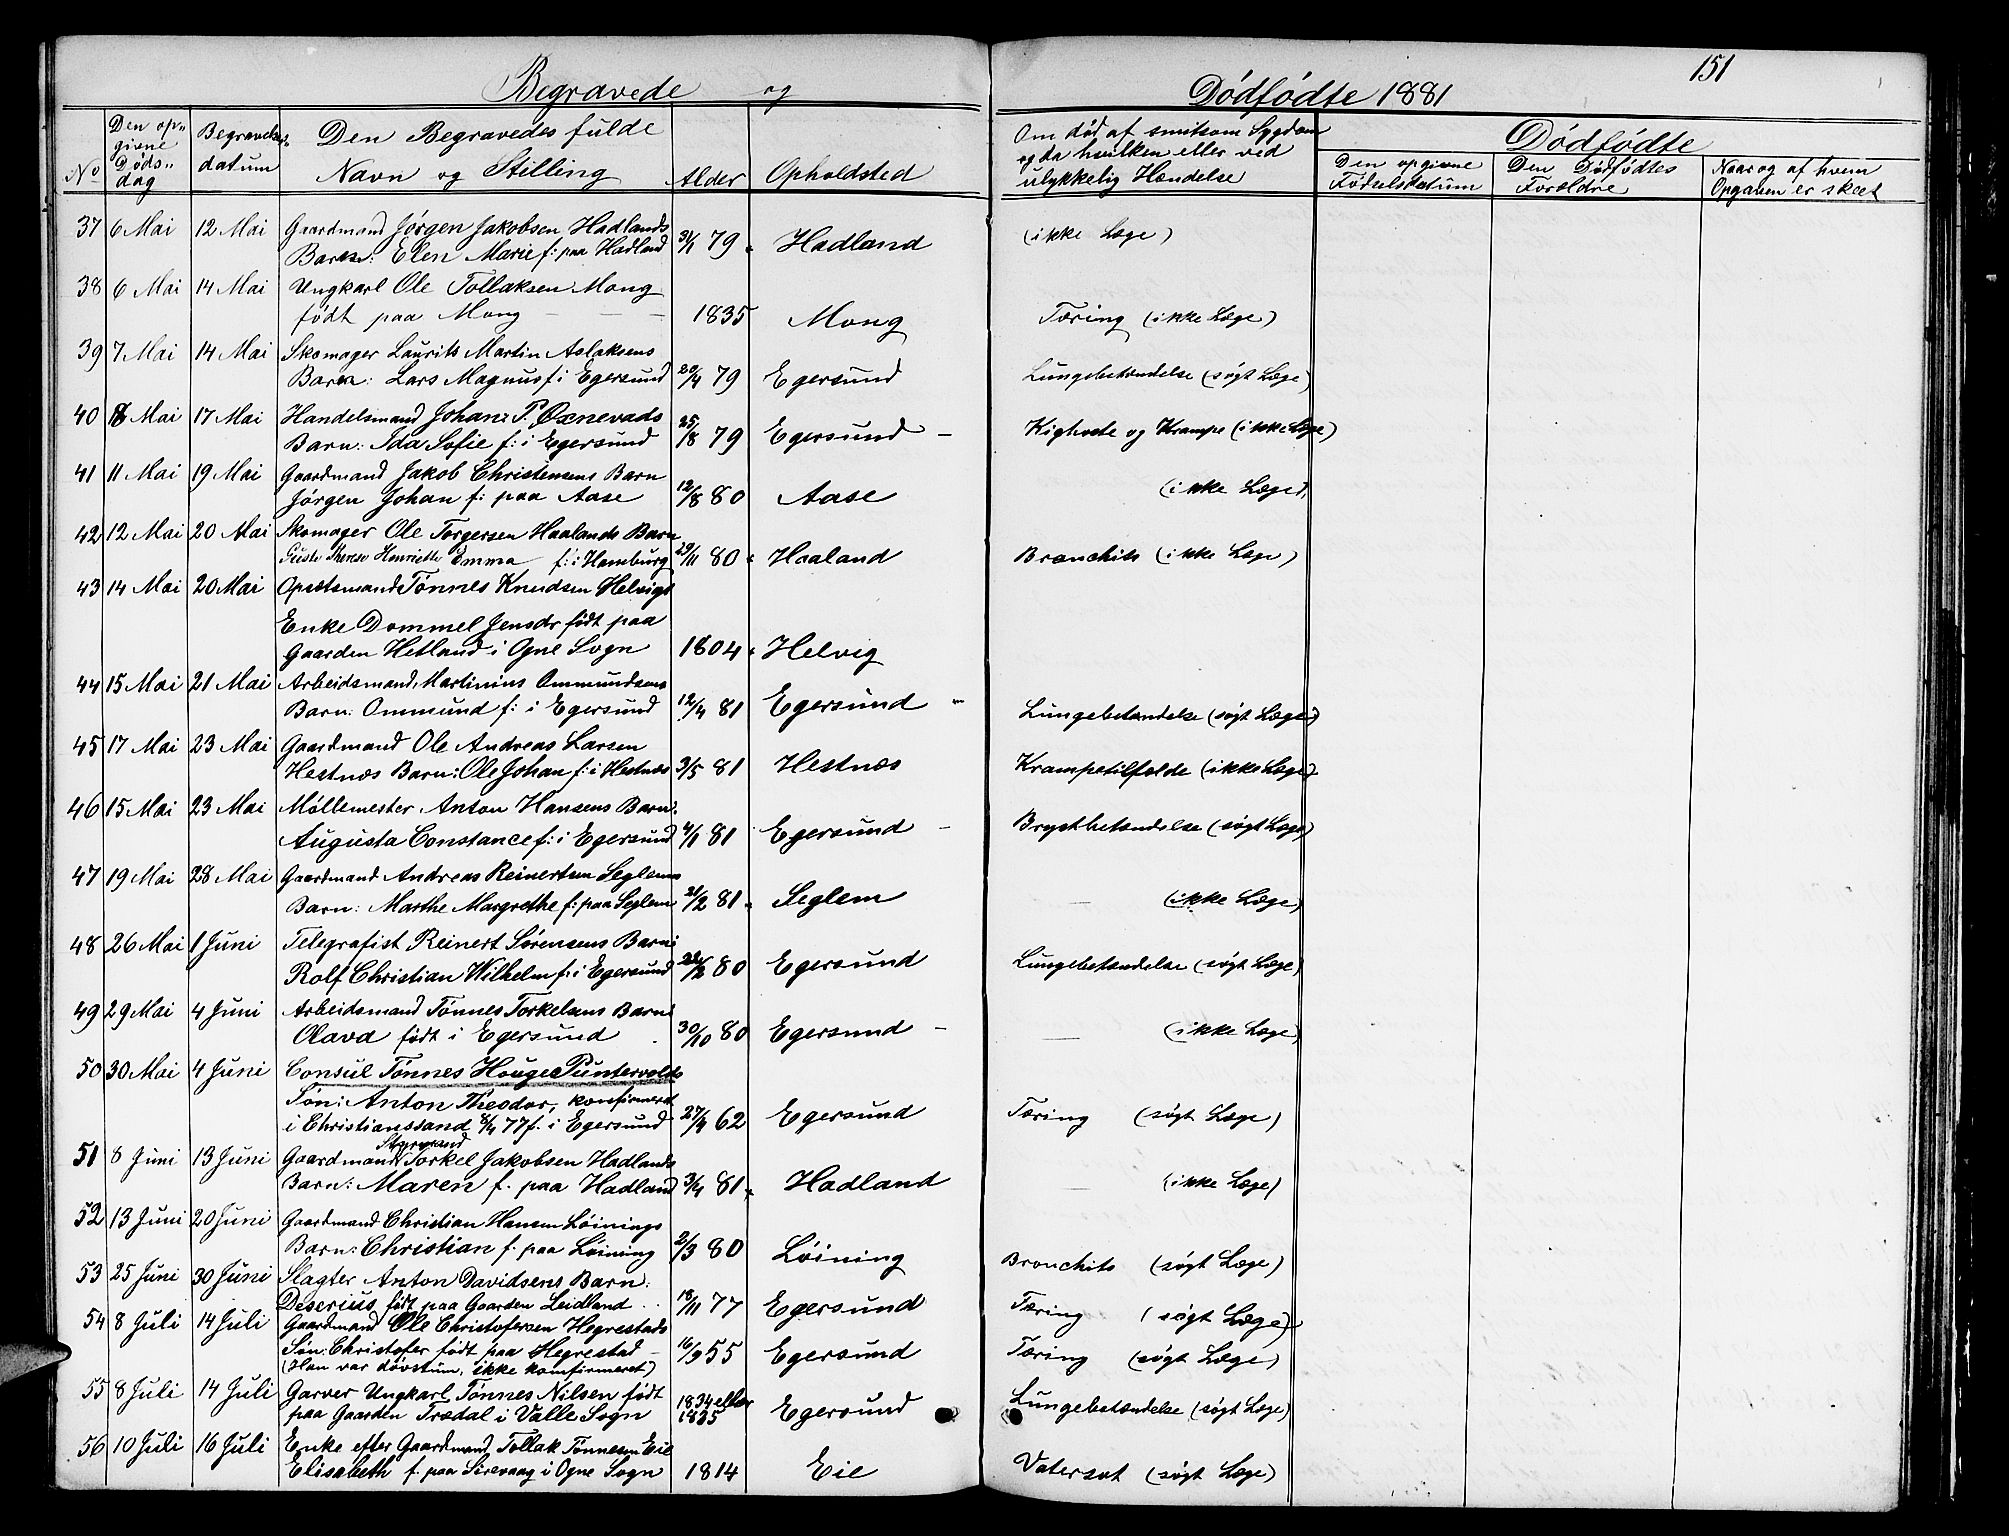 151
Begravede og Dødfødte 1881
No | Den opgivne Dødsdag | Begravelsesdatum | Den Begravedes fulde Navn og Stilling | Alder | Opholdsted | Om død af smitsom Sygdom og da hvilken eller ved ulykkelig Hændelse | Dødfødte
Den opgivne Fødselsdatum | Den Dødfødtes Forældre | Naar og af hvem Opgaven er skeet
37 6 Mai 12 Mai Gaardmand Jørgen Jakobsen Hadlands
Barn: Elen Marie f: paa Hadland 31/1 79 Hadland (ikke Læge)
38 6 Mai 14 Mai Ungkarl Ole Tollaksen Mong
født paa Mong 1835 Mong Tæring (ikke Læge)
39 7 Mai 14 Mai Skomager Laurits Martin Aslaksens
Barn: Lars Magnus f i Egersund 20/4 79 Egersund Lungebetændelse (søgt Læge)
40 8 Mai 17 Mai Handelsmand Johan P. Oxnevads
Barn: Ida Sofie f: i Egersund 25/8 79 Egersund Kighoste og Krampe (ikke Læge)
41 11 Mai 19 Mai Gaardmand Jakob Christensens Barn
Jørgen Johan f: paa Aase 12/8 80 Aase (ikke Læge)
42 12 Mai 20 Mai Skomager Ole Torgersen Haalands Barn
Therese Henriette Emma f: i Hamburg 29/11 80 Haaland Bronchits (ikke Læge)
43 14 Mai 20 Mai Opsætsmand Tønnes Knudsen Helvigs
Enke Dommel Jensdr født paa
Gaarden Hetland i Ogne Sogn 1804 Helvig
44 15 Mai 21 Mai Arbeidsmand Martinius Ommundsens
Barn: Ommund f: i Egersund 12/4 81 Egersund Lungebetændelse (søgt Læge)
45 17 Mai 23 Mai Gaardmand Ole Andreas Larsen
Hestnæs Barn: Ole Johan f: i Hestnæs 3/5 81 Hestnæs Krampetilfælde (ikke Læge)
46 15 Mai 23 Mai Møllemester Anton Hansens Barn:
Augusta Constance f: i Egersund 4/1 81 Egersund Brystbetændelse (søgt Læge)
47 19 Mai 28 Mai Gaardmand Andreas Reinertsen Seglems
Barn: Marthe Margrethe f: paa Seglem 21/2 81 Seglem — (ikke Læge)
48 26 Mai 1 Juni Telegrafist Reinert Sørensens Barn:
Rolf Christian Wilhelm f: i Egersund 80 Egersund Lungebetændelse (søgt Læge)
49 29 Mai 4 Juni Arbeidsmand Tønnes Torkelsens Barn:
Olava født i Egersund 30/10 80 Egersund — (ikke Læge)
50 30 Mai 4 Juni Consul Tønnes Houge Puntervolds
Søn: Anton Theodor, konfirmeret
i Christianssand 8/4 77 f. i Egersund 27/4 62 Egersund Tæring (søgt Læge)
51 8 Juni 13 Juni Gaardmand Styrmand Torkel Jakobsen Hadlands
Barn: Maren f. paa Hadland 3/4 81 Hadland — (ikke Læge)
52 13 Juni 20 Juni Gaardmand Christian Hansen Løinings
Barn: Christian f. paa Løining 2/3 80 Løining Bronchits (søgt Læge)
53 25 Juni 30 Juni Slagter Anton Davidsens Barn:
Deserius født paa Gaarden Leidland 18/11 77 Egersund Tæring (søgt Læge)
54 8 Juli 14 Juli Gaardmand Ole Christofersen Hegrestads
Søn: Christofer født paa Hegrestad
(Han var døvstum, ikke konfirmeret) 16/9 55 Egersund Tæring (søgt Læge)
55 8 Juli 14 Juli Garver Ungkarl Tønnes Nilsen født
paa Gaarden Trædal i Valle Sogn 1834 eller 1835 Egersund Lungebetændelse (søgt Læge)
56 10 Juli 16 Juli Enke efter Gaardmand Tollak Tønnesen Eie
Elisabeth f. paa Sirevaag i Ogne Sogn 1814 Eie Vatersot (søgt Læge)